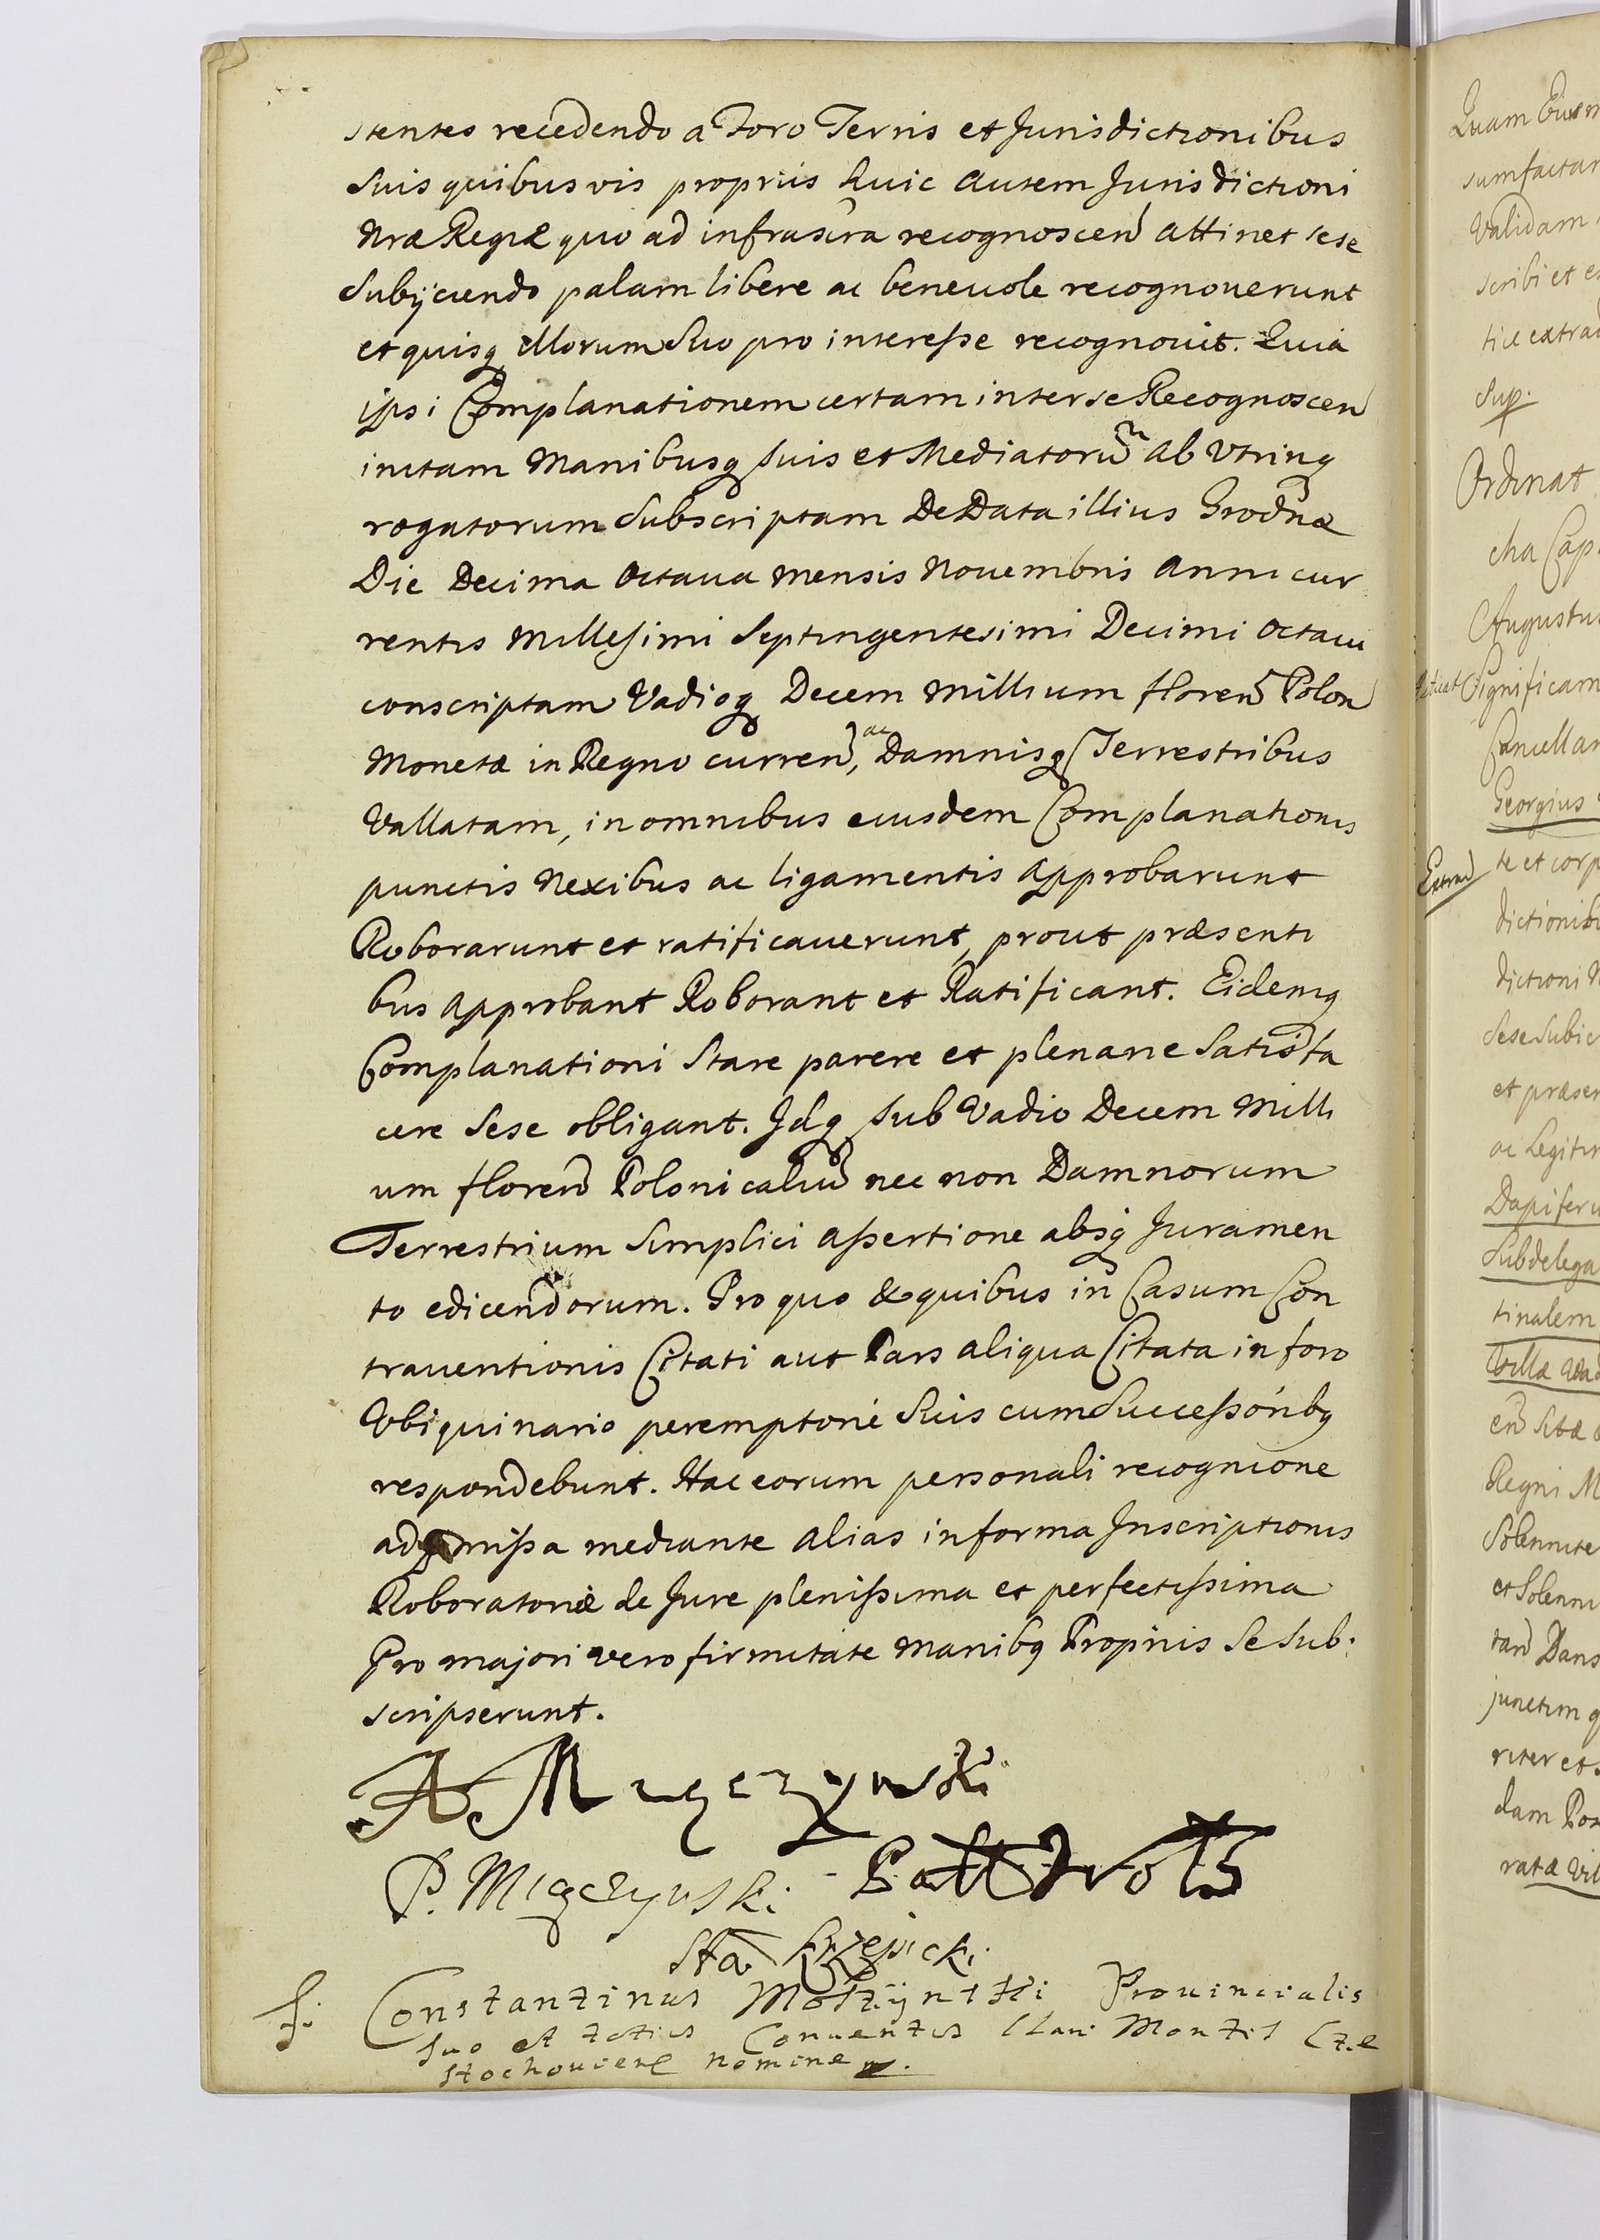 stentes recedendo a Foro Terris et Jurisdictionibus
suis quibusvis propriis huic autem Jurisdictioni
Nrae Regiae quo ad infrascra recognoscen attinet sese
subijciendo palam libere ac beneuole recognouerunt
et quisq illorum suo pro interesse recognouit. Quia
ipsi Complanationem certam inter se Recognoscen
initam Manibusq suis et Mediatorum ab vtrinq
rogatorum subscriptam De Data illius Grodnae
Die Decima Octaua Mensis Nouembris Anni cur
rentis Millesimi Septingentesimi Decimi Octaui
conscriptam Vadioq Decem Millium floren Polon
Monetae in Regno curren, ac Damnisq Terrestribus
Vallatam, in omnibus eiusdem Complanationis
punctis Nexibus ac ligamentis approbarunt
Roborarunt et ratificauerunt, prout praesenti
bus approbant Roborant et Ratificant. Eidemq
Complanationi stare parere et plenarie satisfa
cere sese obligant. Idq sub Vadio Decem Milli
um floren Polonicaliu nec non Damnorum
Terrestrium simplici assertione absq Juramen
to edicendorum. Pro quo & quibus in Casum Con
trauentionis Citati aut Pars aliqua Citata in foro
Vbiquinario peremptorie suis cum Successoribq
respondebunt. Hac eorum personali recognicione
admissa mediante alias in forma Inscriptionis
Roboratoriae de Jure plenissima et perfectissima
Pro majori vero firmitate manibq Propriis se sub:
scripserunt.
A Mączyński
P. Mączyński
Sta Krzepicki
f. Constantinus Moszyński Prouincialis
suo et totius Conuentus Clari Montis Cze
stochouien nomine
Quam
Validam
scribi et
Sup.
Ordinat
cha Cap
Augustus
Significam
Cancellar
Georgius
Extrad te et corp
dictionib
dictioni N
sese subic
et praesen
ac Legitim
Dapiferu
Subdelega
tinalem
Villae
Regni M
Solennite
et Solenni
Dans
junctim q
riter et
dam Por
ratae Vil